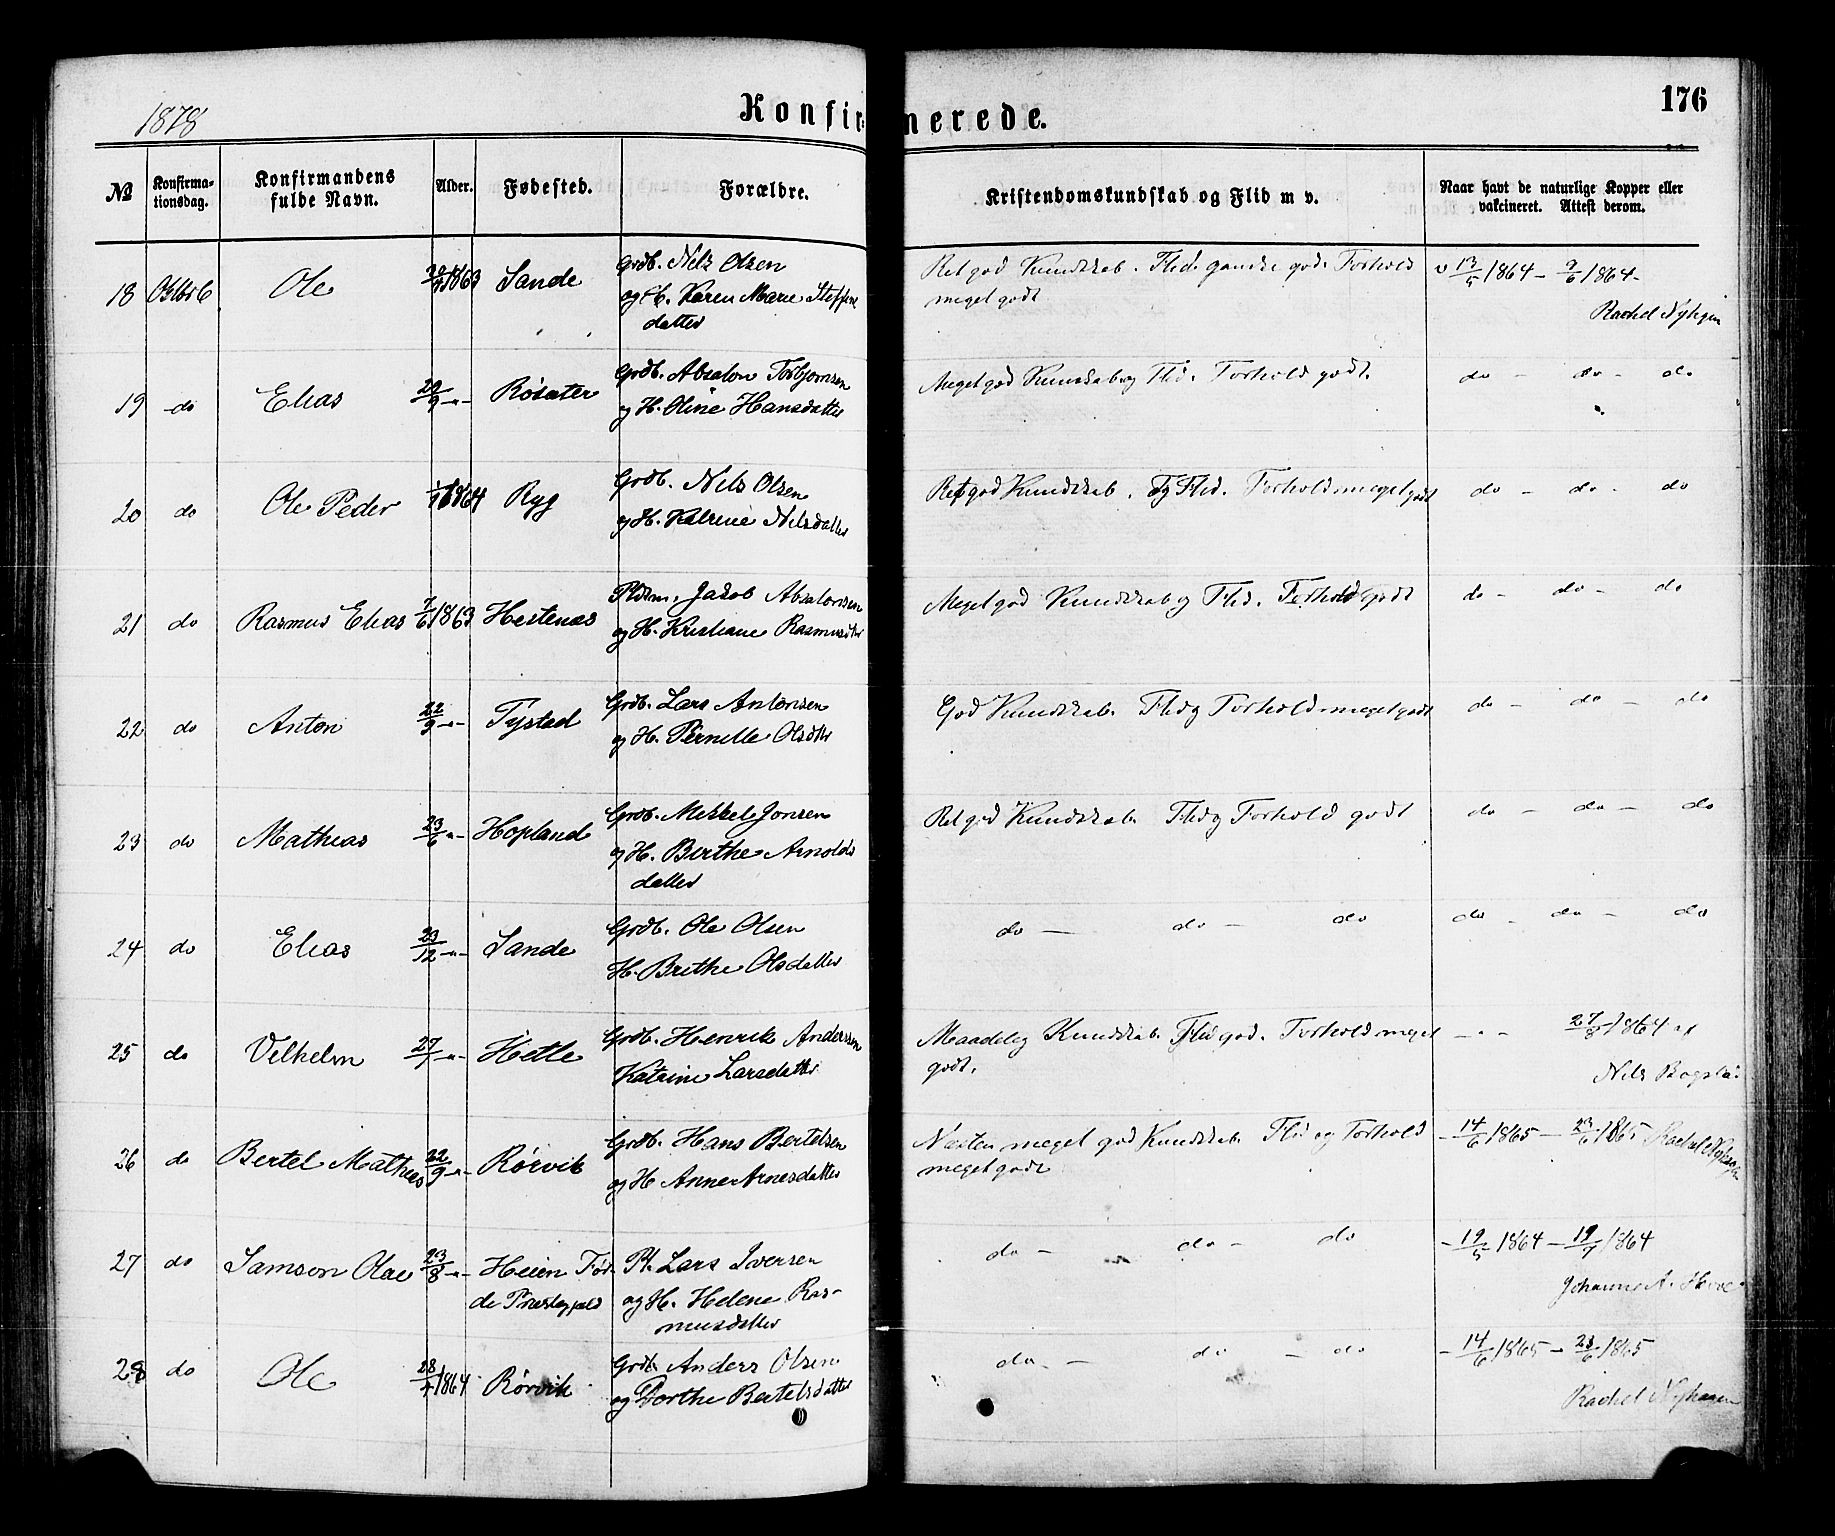 1878
Konfirmerede.
176
№
Konfirma-
tionsdag.
Konfirmandens
fulde Navn.
Alder.
Fødested.
Forældre.
Kristendomskundskab og Flid m v.
Naar havt de naturlige Kopper eller
vakcineret. Attest derom.
18 Ole 1863 Sande Grdb. Nils Olsen
og H. Karen Marie
datter
Ret god Kundskab. Flid ganske god. Forhold
meget godt
v 13/5 1864 – 9/6 1864 –
Rachel Nyhagen
19 do Elias 29/9 –"– Røsæter Grdb. Absalon Torbjørnsen
og H. Oline Hansdatter
Meget god Kundskab og Flid. Forhold godt.
do – do – do
20 do Ole Peder 1864 Ryg Grdb. Nils Olsen
og H. Katrine Nilsdatter
Ret god Kundskab. og Flid. Forhold meget godt
do – do – do
21 do Rasmus Elias 7/6 1863 Hestenæs Pldsm. Jakob Absalonsen
og H. Kristiane Rasmusdtr
Meget god Kundskab og Flid. Forhold godt
do – do – do
22 do Anton 22/9 –"– Tystad Grdb. Lars Antonsen
og H. Pernille Olsdtr
God Kundskab. Flid og Forhold meget godt
do – do – do
23 do Mathias 23/6 –"– Hopland Grdb. Mekkel Jonsen
og H. Berthe Arnolds
datter
Ret god Kundskab. Flid og Forhold godt
do – do – do
24 do Elias 23/12 –"– Sande Grdb. Ole Olsen
H. Brithe Olsdatter
do – do – do
do – do – do
25 do Vilhelm 27/7 –"– Hetle Grdb. Henrik Anderssen
Katrine Larsdatter
Maadelig Kundskab. Flid god. Forhold meget
godt.
– " – 27/8 1864 af
Nils
26 do Bertel Mathias 22/9 –"– Rørvik Grdb. Hans Bertelsen
og H Anne Arnesdatter
Næsten meget god Kundskab. Flid og Forhold
meget godt
– 14/6 1865 – 23/6 1865 Rachel Nyhagen
27 do Samson Olai 23/8 –"– Heien Før-
de Præstegjeld
Pl. Lars Iversen
og H. Helene Ras-
musdatter
do – do – do
– 19/5 1864 – 19/7 1864
Johanne A.
28 do Ole 1864 Rørvik Grdb. Anders Olsen
og Dorthe Bertelsdatter
do – do – do
– 14/6 1865 – 23/6 1865
Rachel Nyhagen